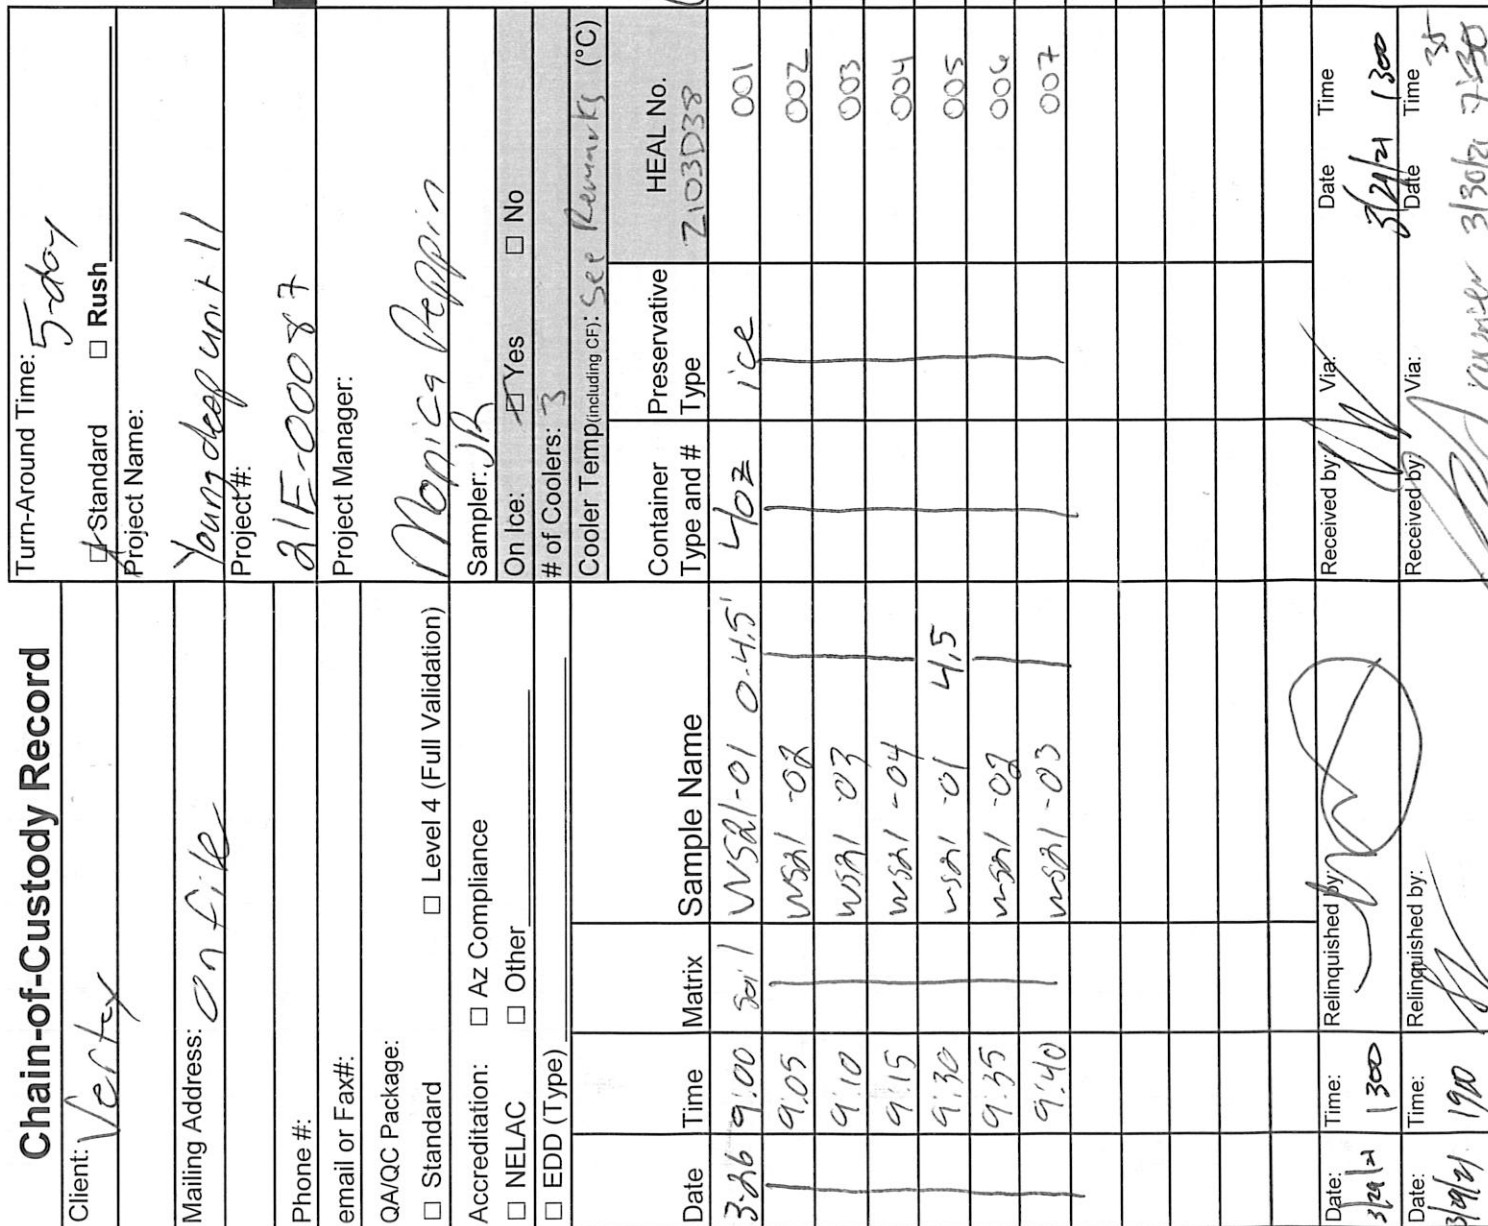 Chain-of-Custody Record
Client: Vertex
Mailing Address: on file
Phone #:
email or Fax#:
QA/QC Package:
□ Standard □ Level 4 (Full Validation)
Accreditation: □ Az Compliance
□ NELAC □ Other
□ EDD (Type)
Turn-Around Time: 5-day
□ Standard □ Rush
Project Name:
Young deep unit 11
Project #:
21E-00087
Project Manager:
Monica Peppin
Sampler: JR
On Ice: □ Yes □ No
# of Coolers: 3
Cooler Temp(including CF): See Remarks (°C)
Date Time Matrix Sample Name Container Type and # Preservative Type HEAL No. 2103D38
3-26 9:00 soil WS21-01 0-4.5' 4oz ice 001
9:05 WS21-02 002
9:10 WS21-03 003
9:15 WS21-04 004
9:30 WS21-01 4.5 005
9:35 WS21-02 006
9:40 WS21-03 007
Date: Time: Relinquished by: Received by: Via: Date Time
3/29/21 1300 3/29/21 1300
Date: Time: Relinquished by: Received by: Via: Date Time
3/29/21 1900 courier 3/30/21 7:35